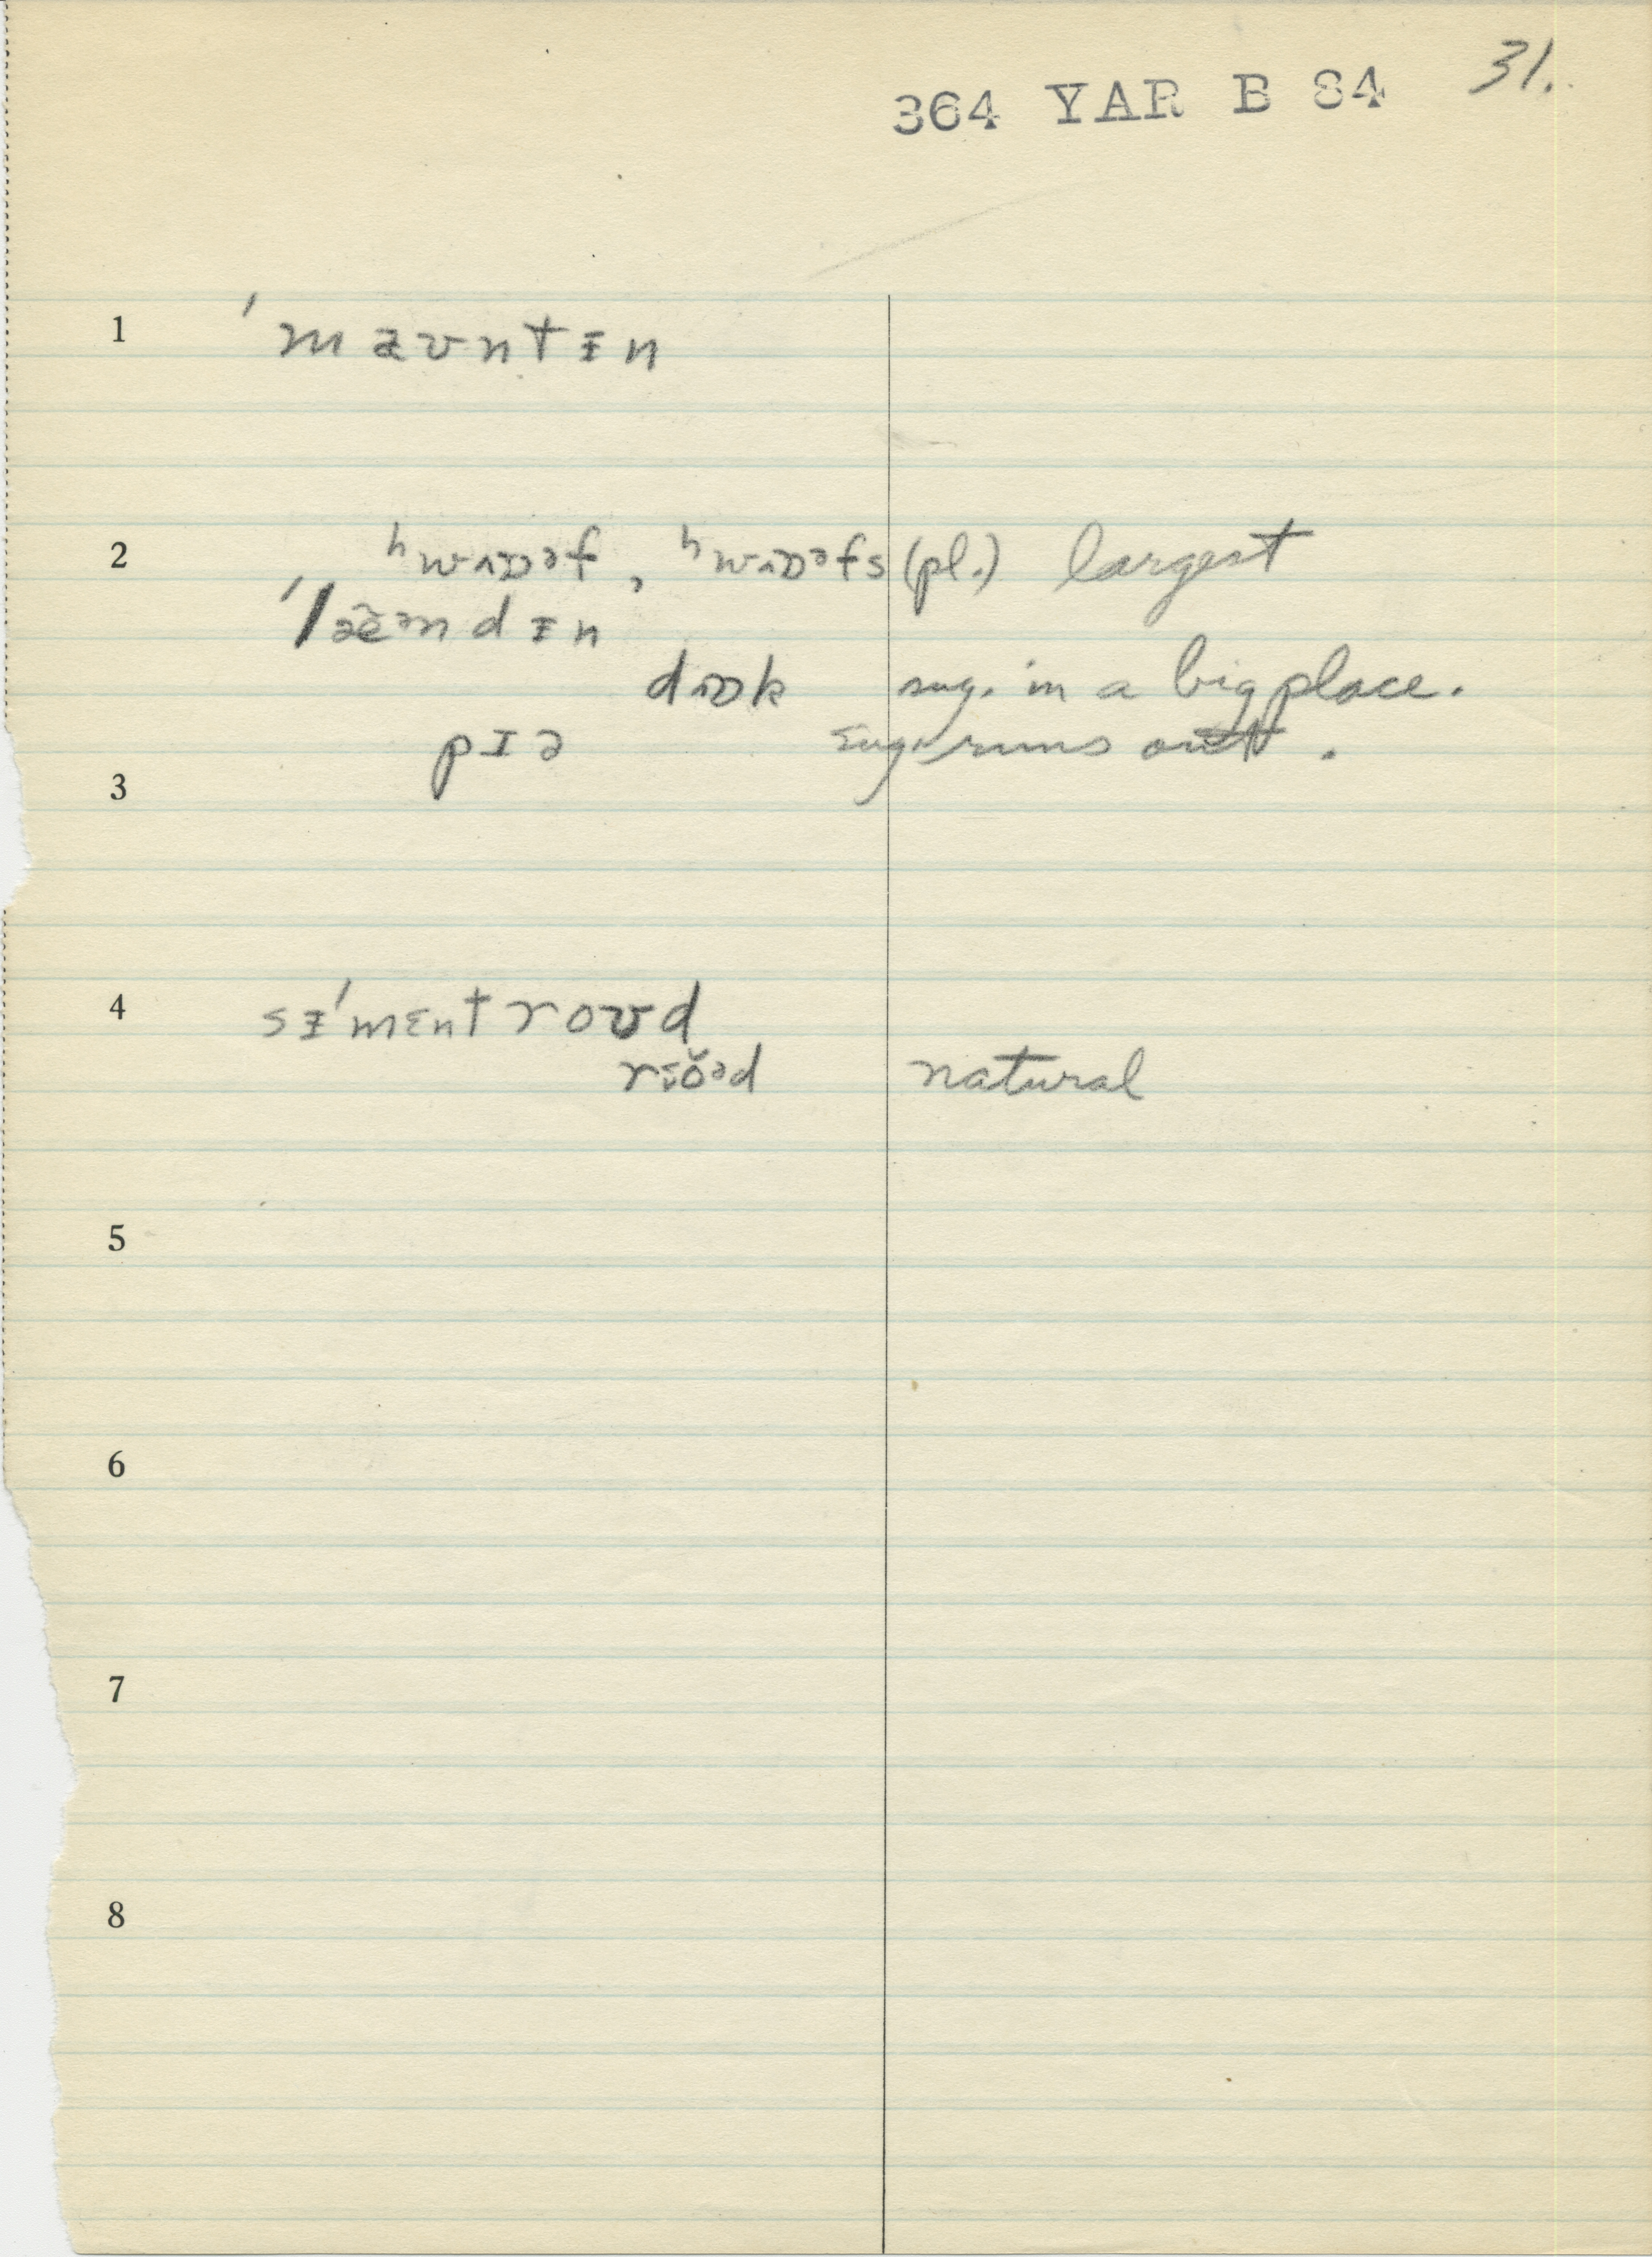 364 YAR B 84 31.
1 ˈmaʊntɨn
2 ʰwɒəf, ʰwɒəfs (pl.) largest
ˈlæəndɨn
dɒk sug. in a big place.
pɪə sug. runs out.
3
4 sɨˈmɛnt roʊd
rɛŏəd natural
5
6
7
8